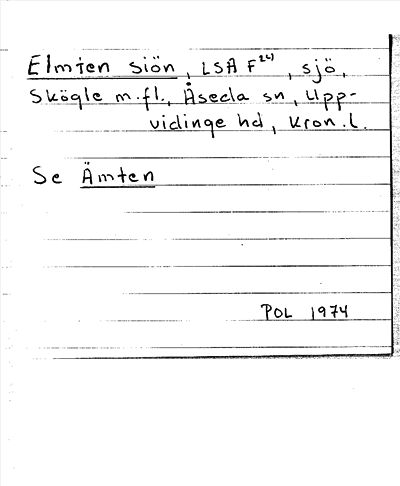 Elmten siön, LSA F²⁴⁾, sjö,
Skögle m.fl., Åseda sn, Upp-
vidinge hd, Kron.l.
Se Ämten
POL 1974